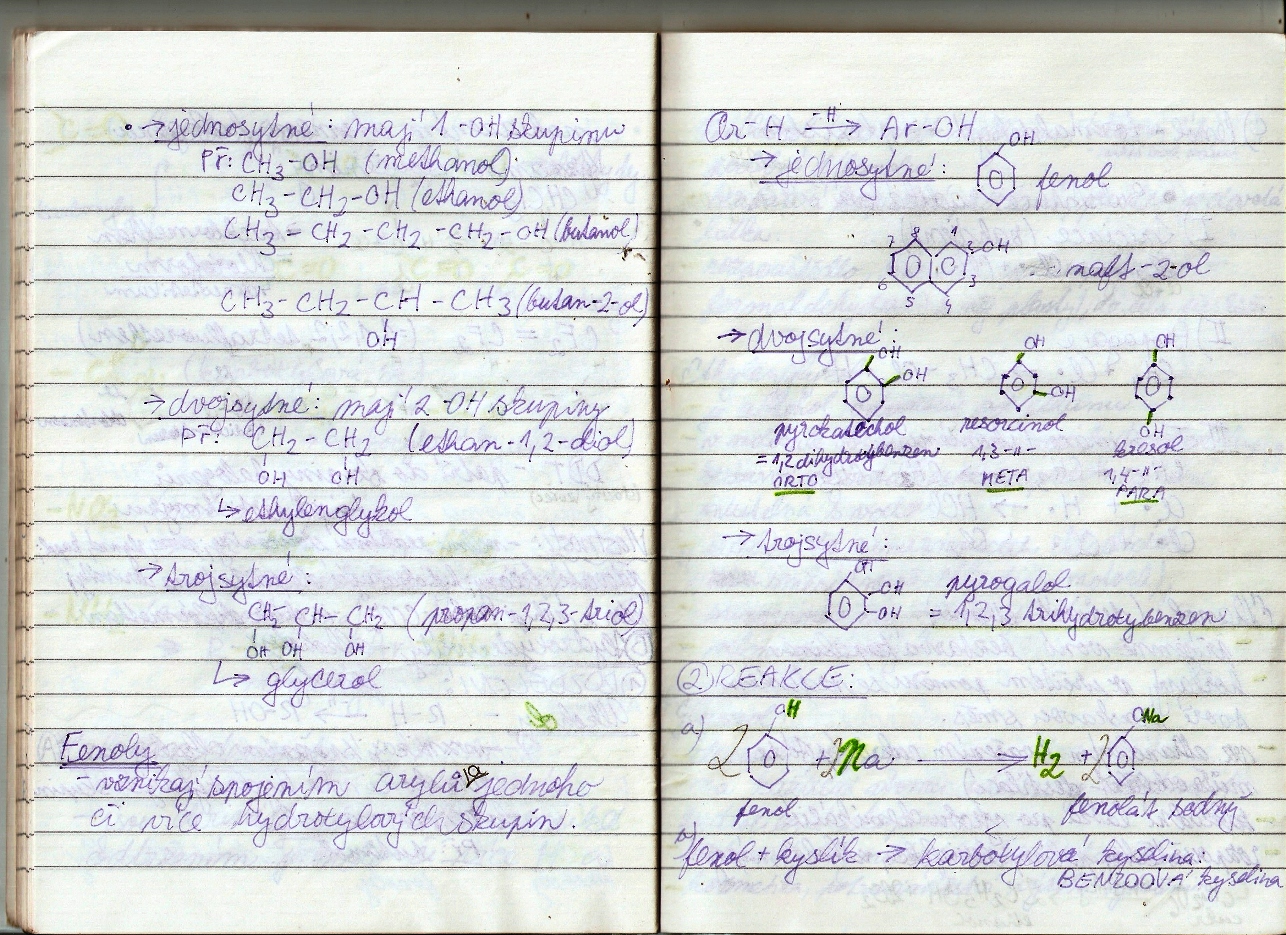 • → jednosytné: mají 1 -OH skupinu
Př: CH3-OH (methanol)
CH3-CH2-OH (ethanol)
CH3-CH2-CH2-CH2-OH (butanol)
CH3-CH2-CH-CH3 (butan-2-ol)
OH
→ dvojsytné: mají 2 OH skupiny
Př: CH2-CH2 (ethan-1,2-diol)
OH OH
↳ ethylenglykol
→ trojsytné:
CH2-CH-CH2 (propan-1,2,3-triol)
OH OH OH
↳ glycerol
Fenoly
- vznikají spojením arylu a jednoho
či více hydroxylových skupin.
Ar-H -H→ Ar-OH
→ jednosytné:
OH
fenol
7 8 1 2 OH
6 5 4 3
naft-2-ol
→ dvojsytné:
OH OH OH
OH OH
pyrokatechol resorcinol
OH
= 1,2 dihydroxybenzen 1,3-"- 1,4-"-
ORTO META PARA
→ trojsytné:
OH
OH pyrogalol
OH = 1,2,3 trihydroxybenzen
② REAKCE:
OH ONa
a) 2 + 2Na → H2 + 2
fenol fenolát sodný
fenol + kyslík → karboxylová kyselina:
BENZOOVÁ kyselina